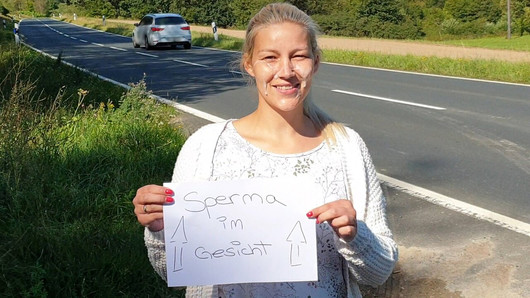 Sperma
im
Gesicht